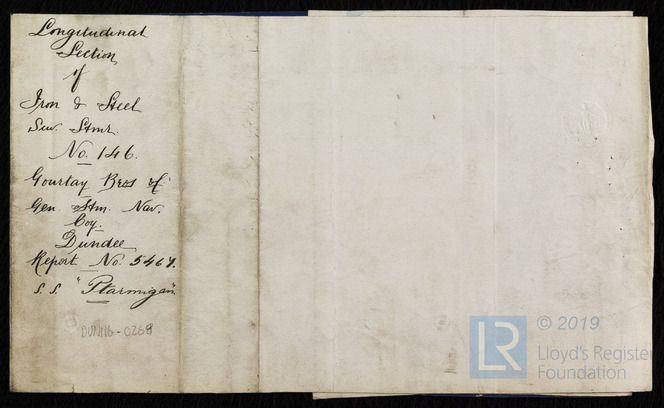 Longitudinal
Section
of
Iron & Steel
Scw. Stmr.
No. 146.
Gourlay Bros &
Gen. Stm. Nav.
Coy.
Dundee
Report No. 5467.
S.S. "Ptarmigan".
DUN116-0268
LR
© 2019
Lloyd's Register
Foundation